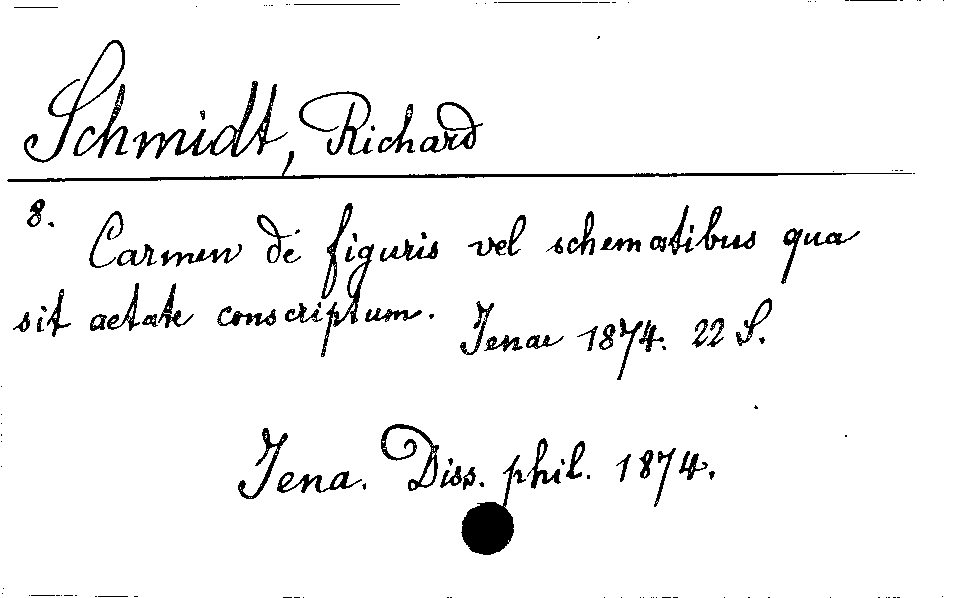 Schmidt, Richard
8.
Carmen de figuris vel schematibus qua
sit aetate conscriptum.
Jenae 1874. 22 S.
Jena. Diss. phil. 1874.